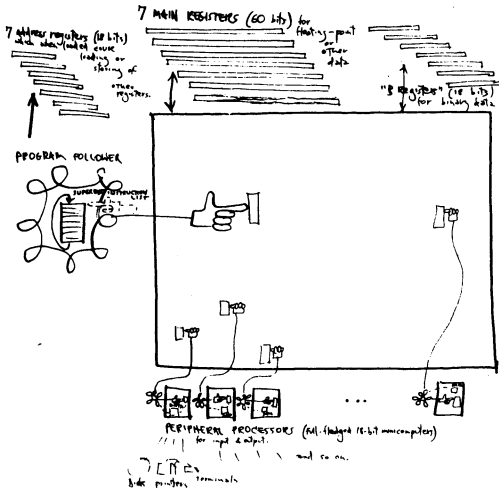 7 address registers (18 bits)
which when loaded cause
loading or
storing of
other
registers.
7 MAIN REGISTERS (60 bits) for
floating-point
or
other
data
"B Registers" (18 bits)
for binary data
PROGRAM FOLLOWER
LIST
...
PERIPHERAL PROCESSORS (full-fledged 18-bit minicomputers)
for input & output.
and so on.
printers terminals